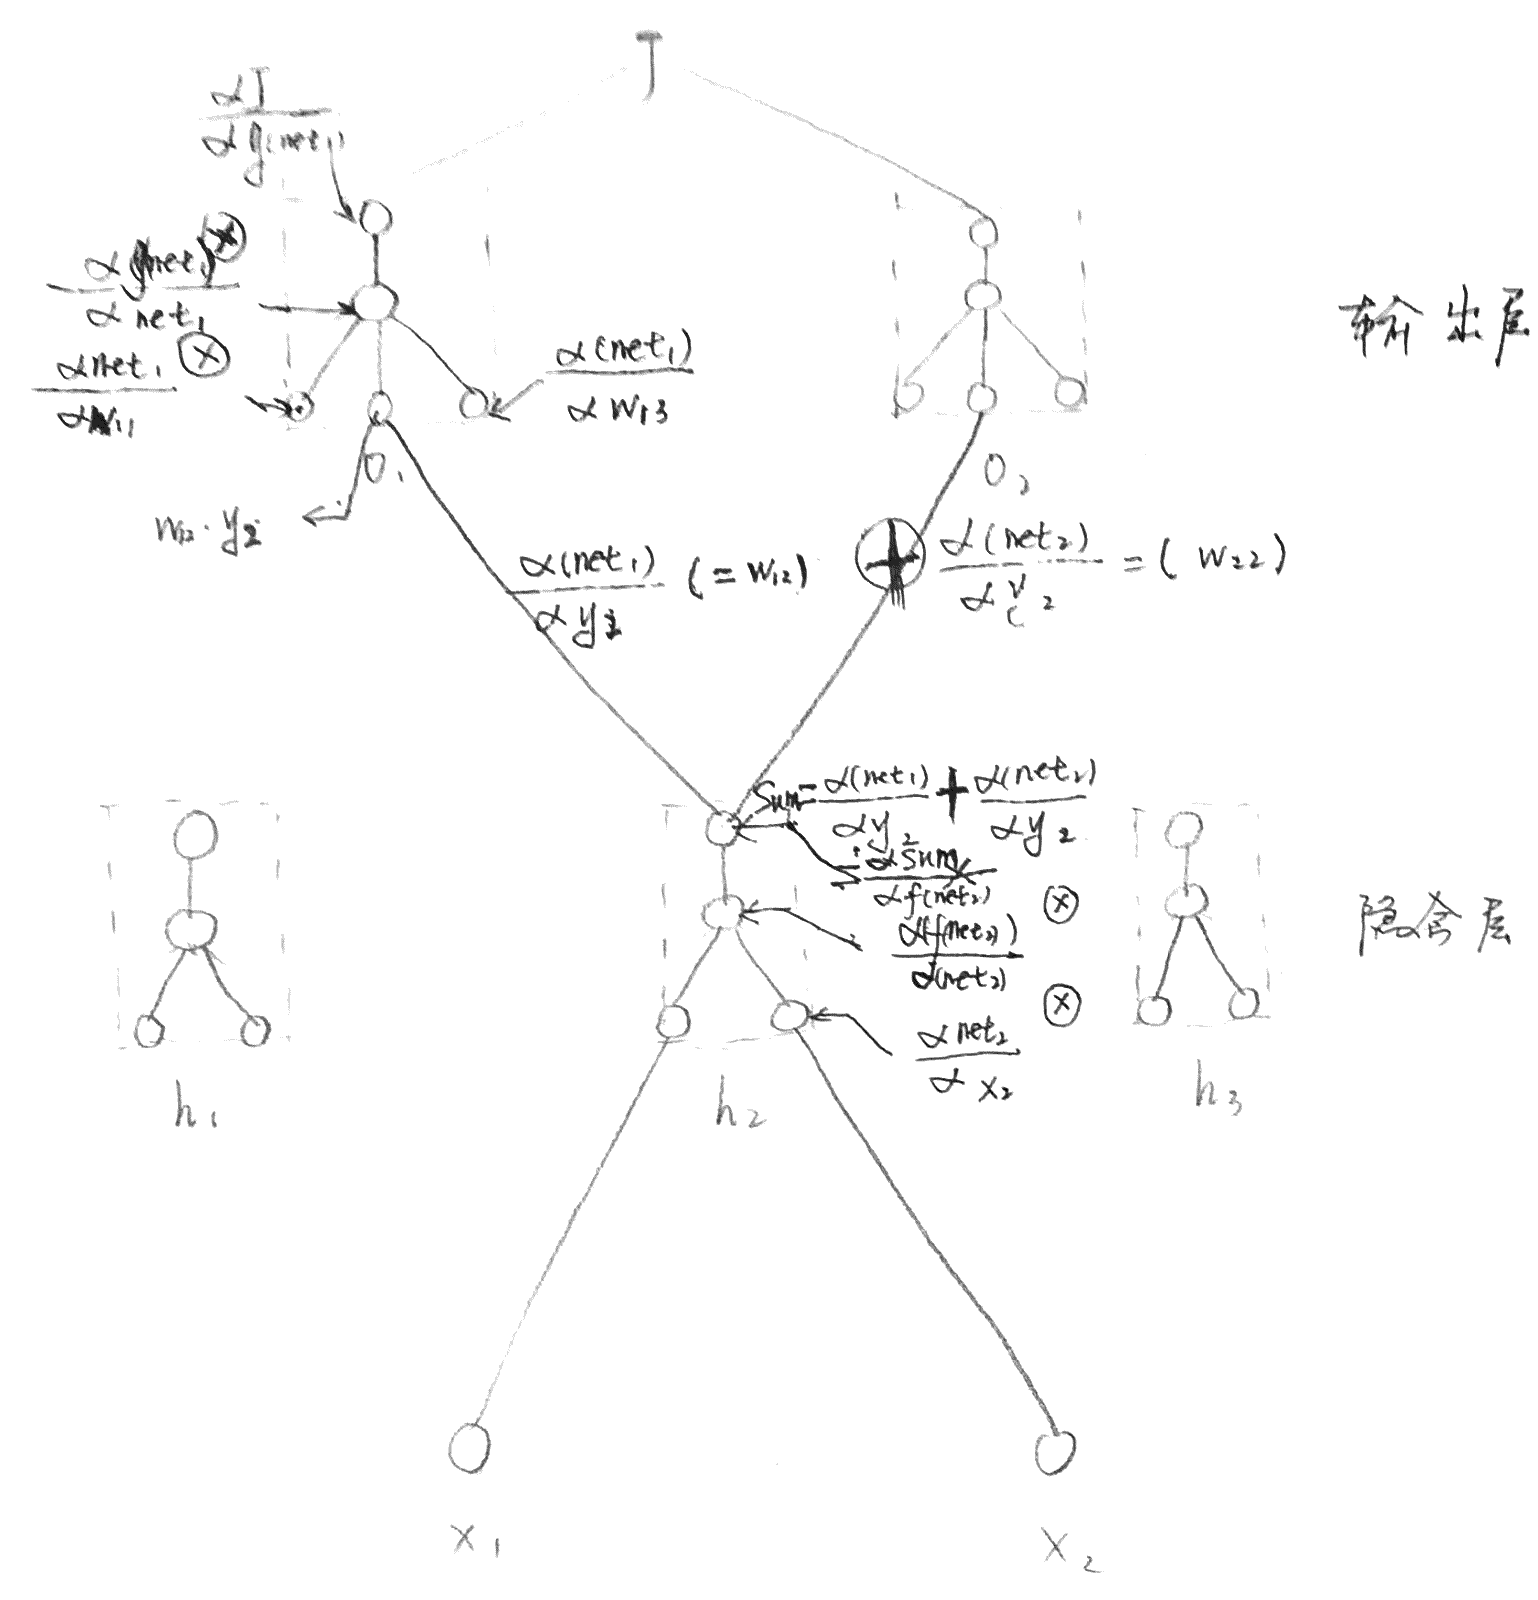 J
αJ
α g(net₁)
α g(net₁) ⊗
α net₁
α net₁ ⊗
α W₁₁
α(net₁)
α W₁₃
输出层
O₁
O₂
W₁₂ · y₂
α(net₁) (= W₁₂)
α y₂
+ α(net₂) = ( W₂₂ )
α y₂
Sum = α(net₁) + α(net₂)
α y₂ α y₂
α Sum
α f(net₂) ⊗
α(f(net₂))
α(net₂) ⊗
α net₂
α x₂
隐含层
h₁
h₂
h₃
x₁
x₂